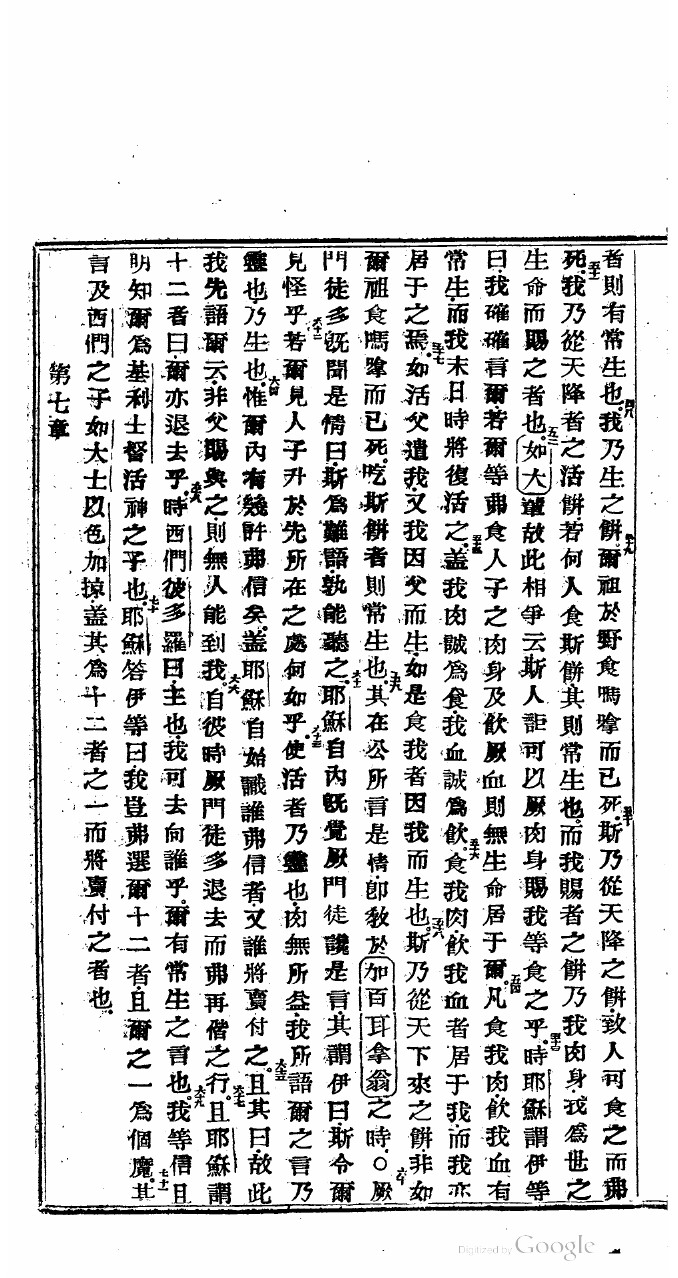 者則有常生也。四八我乃生之餅。四九爾祖於野食嗎嗱而已死。五十斯乃從天降之餅。致人可食之而弗
死。五一我乃從天降者之活餅。若何人食斯餅其則常生也。而我賜者之餅乃我肉身。我為世之
生命而賜之者也。五二如大輩故此相爭云斯人詎可以厥肉身賜我等食之乎。五三時耶穌謂伊等
曰。我確確言爾。若爾等弗食人子之肉身及飲厥血則無生命居于爾。五四凡食我肉飲我血有
常生。而我末日時將復活之。五五蓋我肉誠為食。我血誠為飲。五六食我肉飲我血者居于我而我亦
居于之焉。五七如活父遣我。又我因父而生。如是食我者因我而生也。五八斯乃從天下來之餅非如
爾祖食嗎嗱而已死。吃斯餅者則常生也。五九其在公所言是情。卽教於加百耳拿翁之時。○六十厥
門徒多旣聞是情曰。斯為難語孰能聽之。六一耶穌自內旣覺厥門徒譏是言。其謂伊曰。斯令爾
見怪乎。六二若爾見人子升於先所在之處何如乎。六三使活者乃靈也。肉無所益。我所語爾之言乃
靈也乃生也。六四惟爾內有幾許弗信矣。蓋耶穌自始識誰弗信者又誰將賣付之。六五且其曰。故此
我先語爾云。非父賜與之則無人能到我。六六自彼時厥門徒多退去而弗再偕之行。六七且耶穌謂
十二者曰。爾亦退去乎。六八時西們彼多羅曰。主也。我可去向誰乎。爾有常生之言也。六九我等信且
明知爾為基利士督活神之子也。七十耶穌答伊等曰我豈弗選爾十二者。且爾之一為個魔。七十一其
言及西們之子如大士以色加掠。蓋其為十二者之一而將賣付之者也。
第七章
Digitized by Google